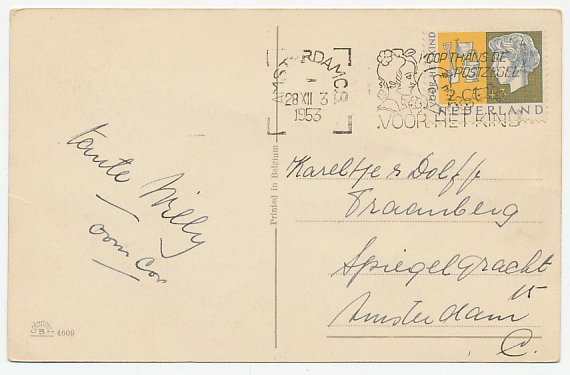 AMSTERDAM C.S.
28 XII 3
1953
KOOP THANS DE
POSTZEGEL
VOOR HET KIND
VOOR HET KIND
2 CT + 3
NEDERLAND
tante Willy
oom Cor
Printed in Belgium
Kareltje & Dolfje
Traanberg
Spiegelgracht
15
Amsterdam
C.
4609